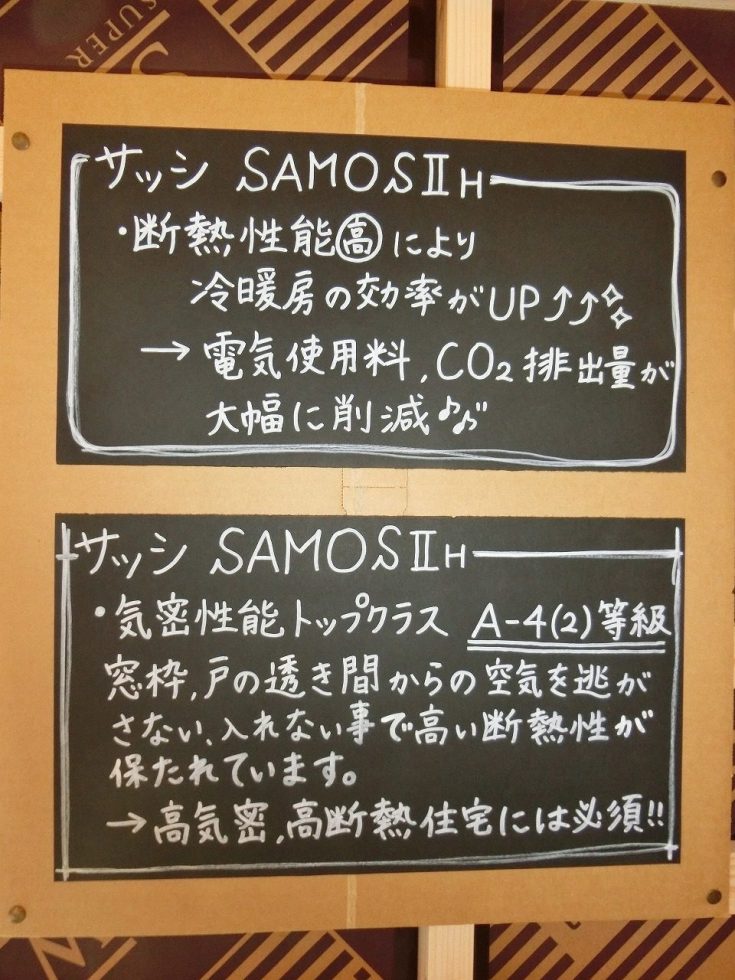 SUPER
サッシ SAMOSⅡH
・断熱性能㊤により
冷暖房の効率がUP⤴⤴✧✧
→電気使用料,CO₂排出量が
大幅に削減♪♪"
サッシ SAMOSⅡH
・気密性能トップクラス A-4(2)等級
窓枠,戸の透き間からの空気を逃が
さない、入れない事で高い断熱性が
保たれています。
→高気密,高断熱住宅には必須!!